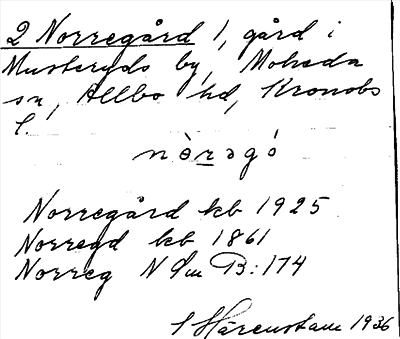 2 Norregård 1, gård i
Musteryds by, Moheda
sn, Allbo hd, Kronobs
l.
nòrəgó
Norregård kb 1925
Norregd kb 1861
Norreg N Qm B:174
S Härenstam 1936